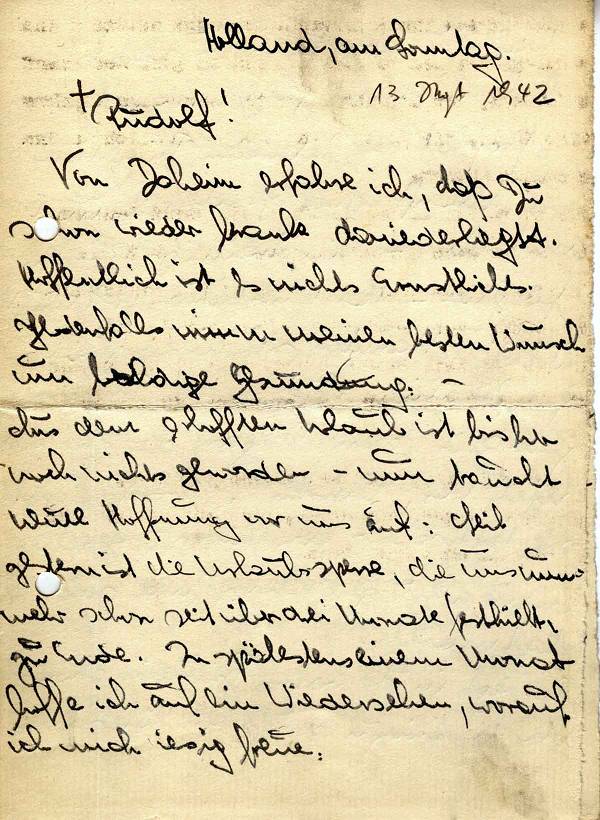 Holland, am Sonntag.
13. Sept 1942
+ Rudolf!
Von Daheim erfahre ich, daß Du
schon wieder krank darniederliegst.
Hoffentlich ist es nichts Ernstliches.
Jedenfalls nimm meinen besten Wunsch
um baldige Gesundung. –
Aus dem erhofften Urlaub ist bisher
noch nichts geworden – nun taucht
neue Hoffnung vor uns auf: Seit
gestern ist die Urlaubssperre, die uns nun-
mehr schon seit über drei Monate festhielt,
zu Ende. In spätestens einem Monat
hoffe ich auf ein Wiedersehen, worauf
ich mich riesig freue.